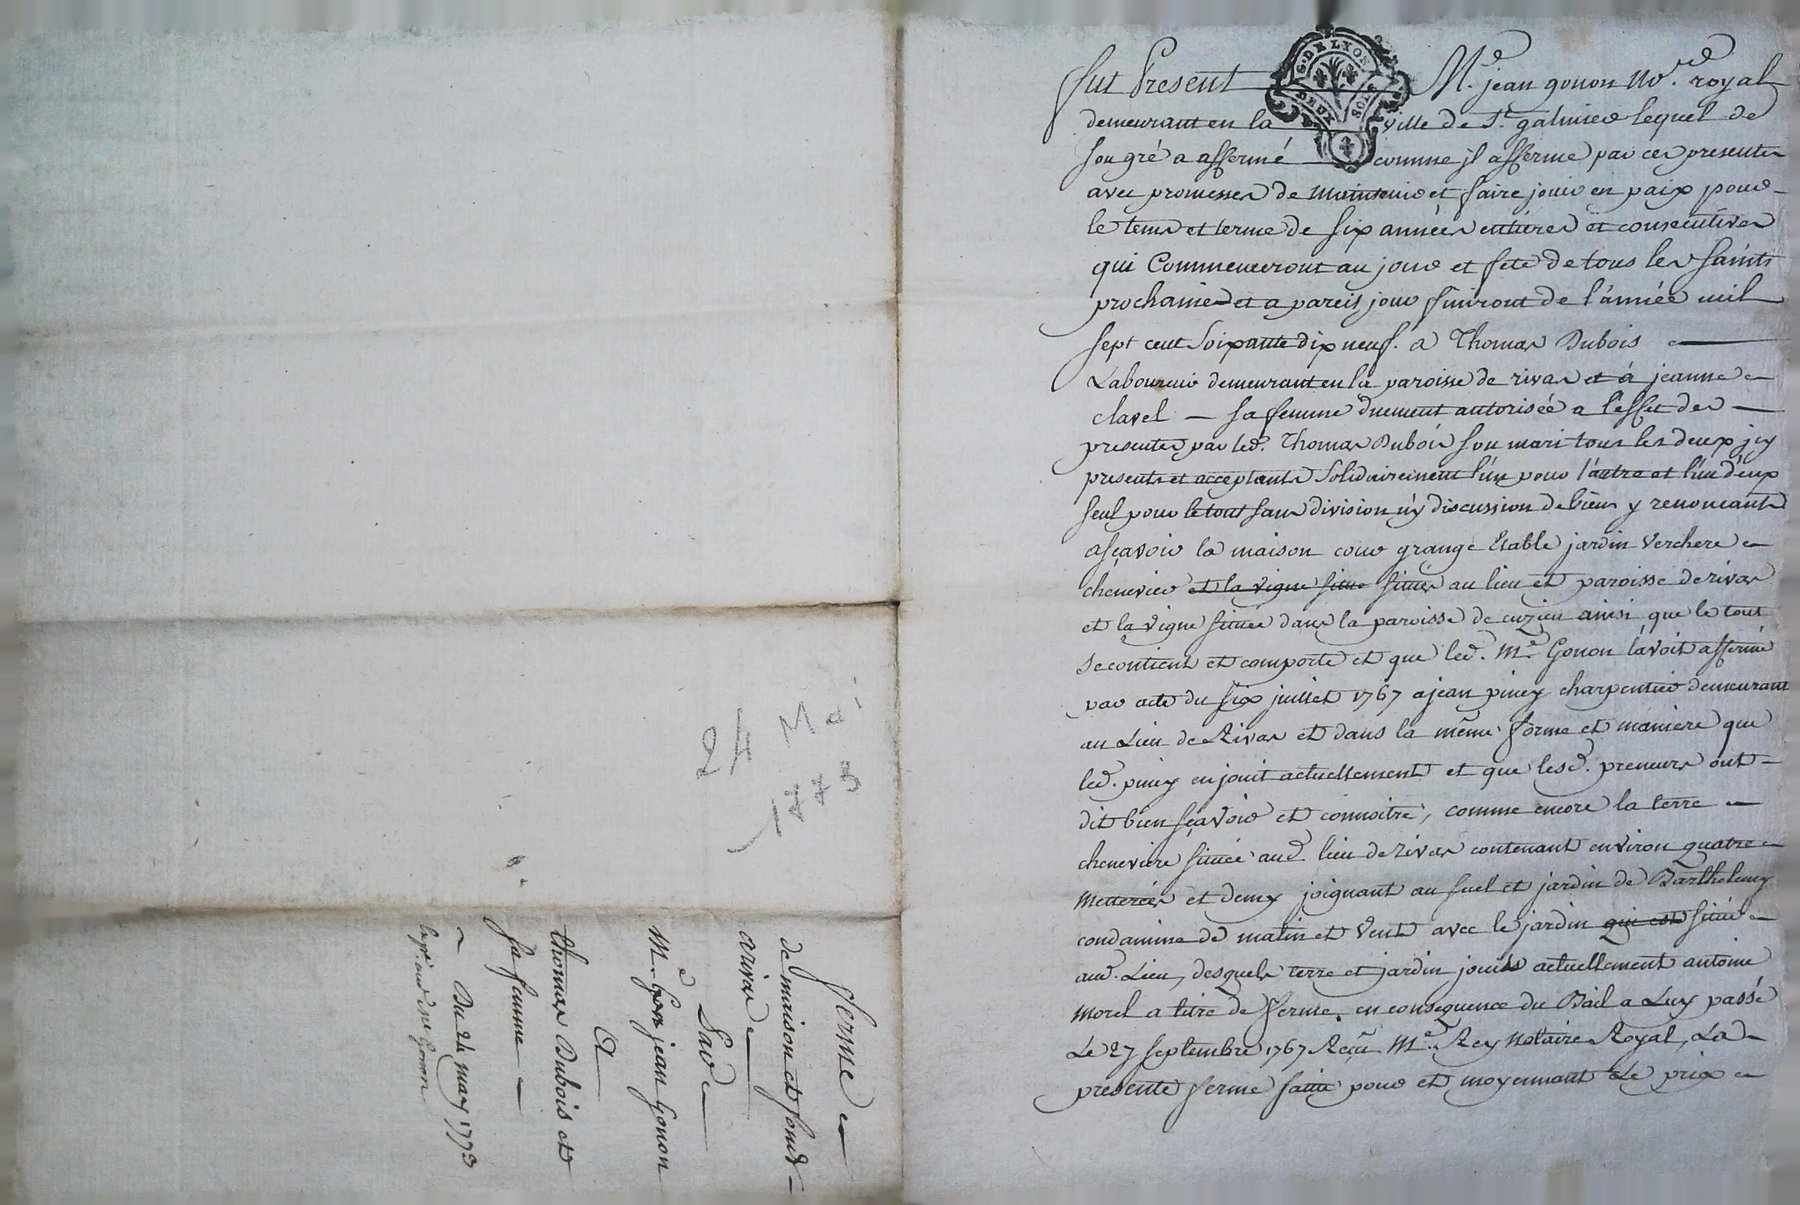 24 Mai
1773
ferme
de maison et fonds
a rivas
Par
Me. jean Gonon
a
thomas Dubois et
sa femme
Du 24 may 1773
G. DE LYON
DEUX SOLS
fut Present Me. jean gonon No.re royal
demeurant en la ville de St. galmier lequel de
son gré a affermé comme jl afferme par ces presentes
avec promesses de maintenir et faire jouir en paix pour
le tems et terme de six années entieres et consecutives
qui Commenceront au jour et fete de tous les saints
prochaine et a pareis jour finiront de l'année mil
sept cent soixante dix neuf. a Thomas Dubois
Laboureur demeurant en la paroisse de rivas et à jeanne
clavel sa femme duement autorisée a l'effet des
presentes par led. Thomas Dubois son mari tous les deux jcy
presents et acceptants solidairement l'un pour l'autre et l'un d'eux
seul pour le tout sans division n'y discussion de biens y renoncants
asçavoir la maison cour grange Etable jardin verchere
chenevier et la vigne situe situés au lieu et paroisse de rivas
et la vigne située dans la paroisse de cuzieu ainsi que le tout
se contient et comporte et que led. Me. Gonon l'avoit affermé
par acte du six juillet 1767 a jean piney charpentier demeurant
au Lieu de Rivas et dans la même forme et maniere que
led. piney en jouit actuellement et que lesd. preneurs ont
dit bien sçavoir et connoitre, comme encore la terre
cheneviere située aud. lieu de rivas contenant environ quatre
metterées et demy joignant au suel et jardin de Barthelemy
condamine de matin et vent avec le jardin qui est situé
aud. Lieu, desquels terre et jardin jouis actuellement antoine
morel a titre de ferme, en consequence du Bail a Luy passé
Le 27 septembre 1767 Reçu Me. Rey Notaire Royal, La
presente ferme faitte pour et moyennant Le prix